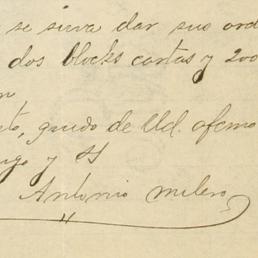 se sirva dar sus ord
dos blocks cartas y 200
n
to, quedo de Ud. afcmo
igo y SS
Antonio Melero